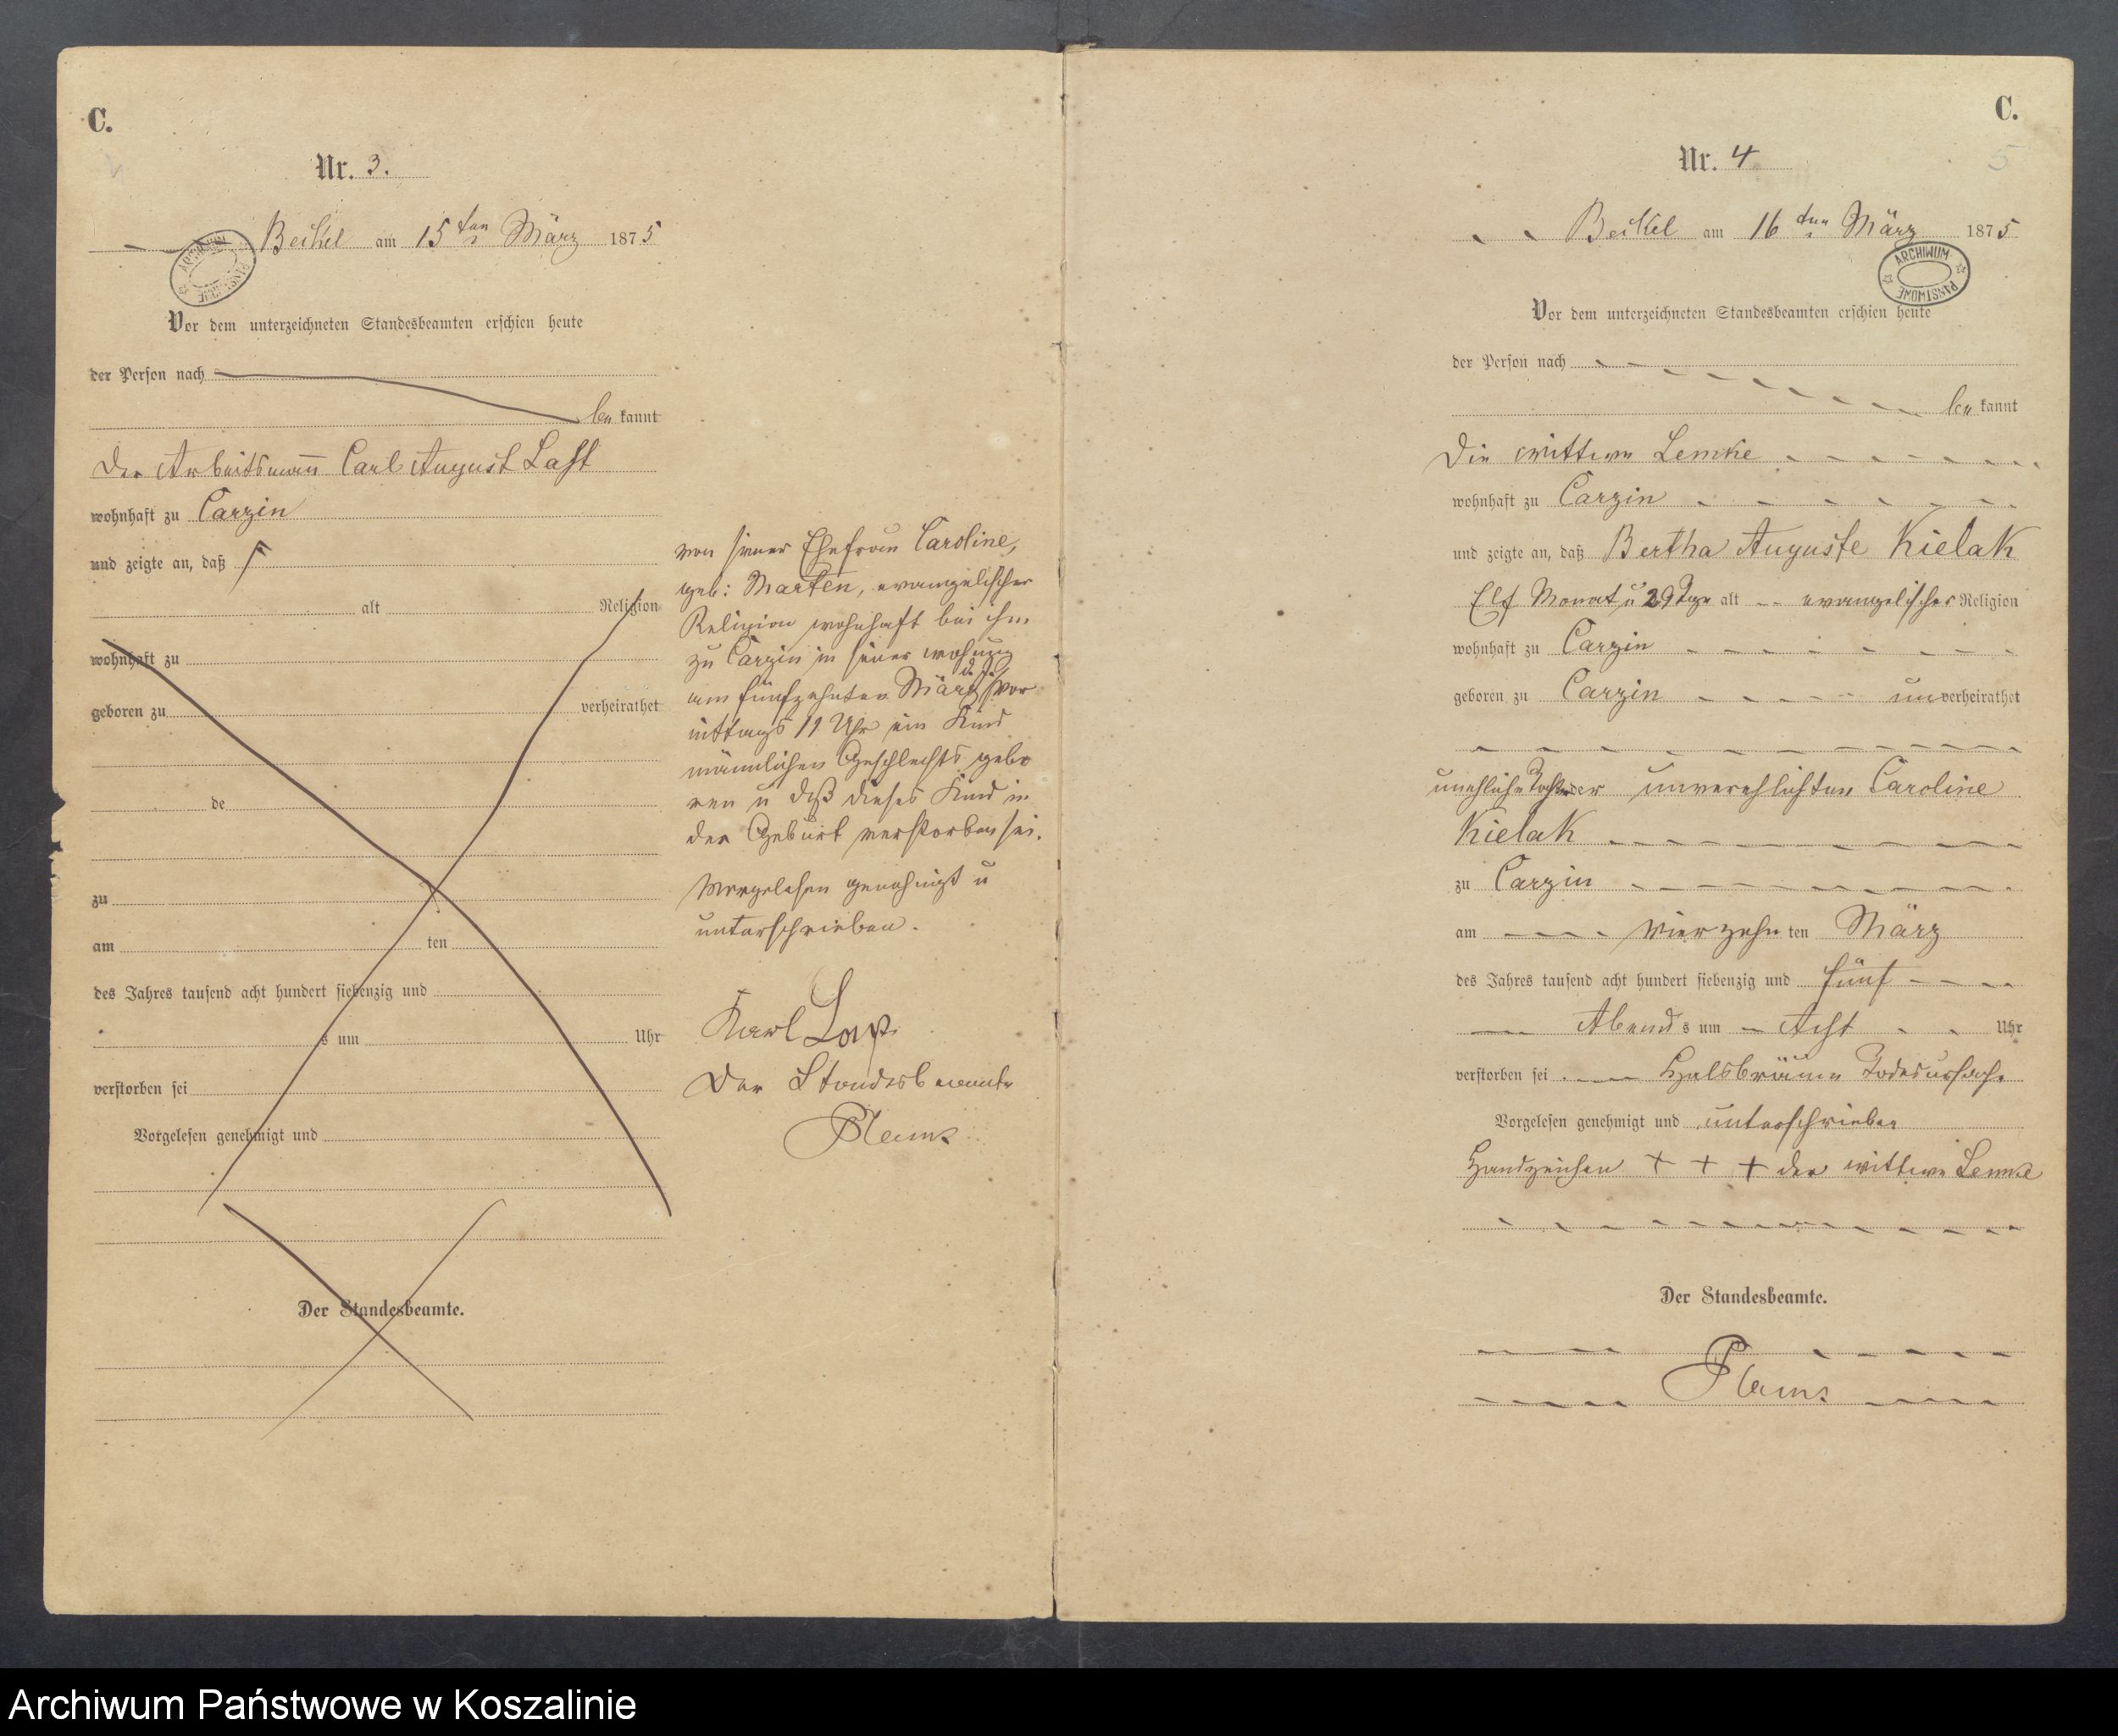 C.
Nr. 3.
Beckel am 15ten März 1875
Vor dem unterzeichneten Standesbeamten erschien heute
der Person nach
bekannt
Der Arbeitsmann Carl August Last
wohnhaft zu Carzin
und zeigte an, daß
alt Religion
wohnhaft zu
geboren zu verheirathet
de
zu
am ten
des Jahres tausend acht hundert siebenzig und
s um Uhr
verstorben sei
Vorgelesen genehmigt und
Der Standesbeamte.
von seiner Ehefrau Caroline,
geb: Marten, evangelischer
Religion wohnhaft bei ihm
zu Carzin in seiner wohnung
am fünfzehnten März d. J. Vor
mittags 11 Uhr ein Kind
männlichen Geschlechts gebo
ren u daß dieses Kind in
der Geburt verstorben sei.
Vorgelesen genehmigt u
unterschrieben.
Karl Last
Der Standesbeamte
C.
5
Nr. 4
Beckel am 16ten März 1875
ARCHIWUM PAŃSTWOWE
Vor dem unterzeichneten Standesbeamten erschien heute
der Person nach
bekannt
Die Wittwe Lemke
wohnhaft zu Carzin
und zeigte an, daß Bertha Auguste Kielak
Elf Monat u 29 Tage alt evangelischer Religion
wohnhaft zu Carzin
geboren zu Carzin unverheirathet
unehliche Tochter der unverehlichten Caroline
Kielak
zu Carzin
am vierzehnten März
des Jahres tausend acht hundert siebenzig und fünf
Abends um Acht Uhr
verstorben sei Halsbräune Todesursache
Vorgelesen genehmigt und unterschrieben
Handzeichen + + + der Wittwe Lemke
Der Standesbeamte.
Archiwum Państwowe w Koszalinie